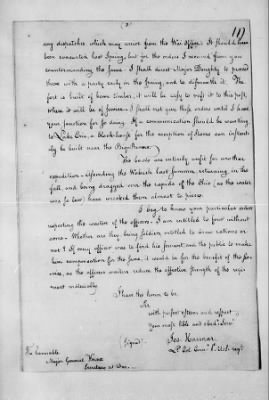 3
any dispatches which may arrive from the War Office. It should have
been evacuated last Spring, but for the orders I received from you
countermanding the same. I shall direct Major Doughty to proceed
there with a party early in the Spring, and to dismantle it. The
fort is built of hewn timber, it will be easy to raft it to this post,
where it will be of service. I shall not give these orders until I have
your sanction for so doing. If a communication should be wanting
to Lake Erie, a block-house for the reception of stores can instantly
be built near the
The boats are entirely unfit for another
expedition. Ascending the Wabash last Summer, returning in the
fall, and being dragged over the rapids of the Ohio (as the water
was so low) have wrecked them almost to pieces.
I beg to know your particular orders
respecting the waiters of the officers. I am entitled to four without
arms. Whether are they, being soldiers, entitled to draw rations or
not? If any officer was to find his servant and the public to make
him compensation for the same, it would be for the benefit of the ser-
vice, as the officers waiters reduce the effective strength of the regi-
ment materially.
I have the honor to be
Sir
with perfect esteem and respect
your most hble and obedt Servt
(Signed) Jos. Harmar
Lt. Col. Comt. 1st U.S. regt
The honorable
Major General Knox
Secretary at War